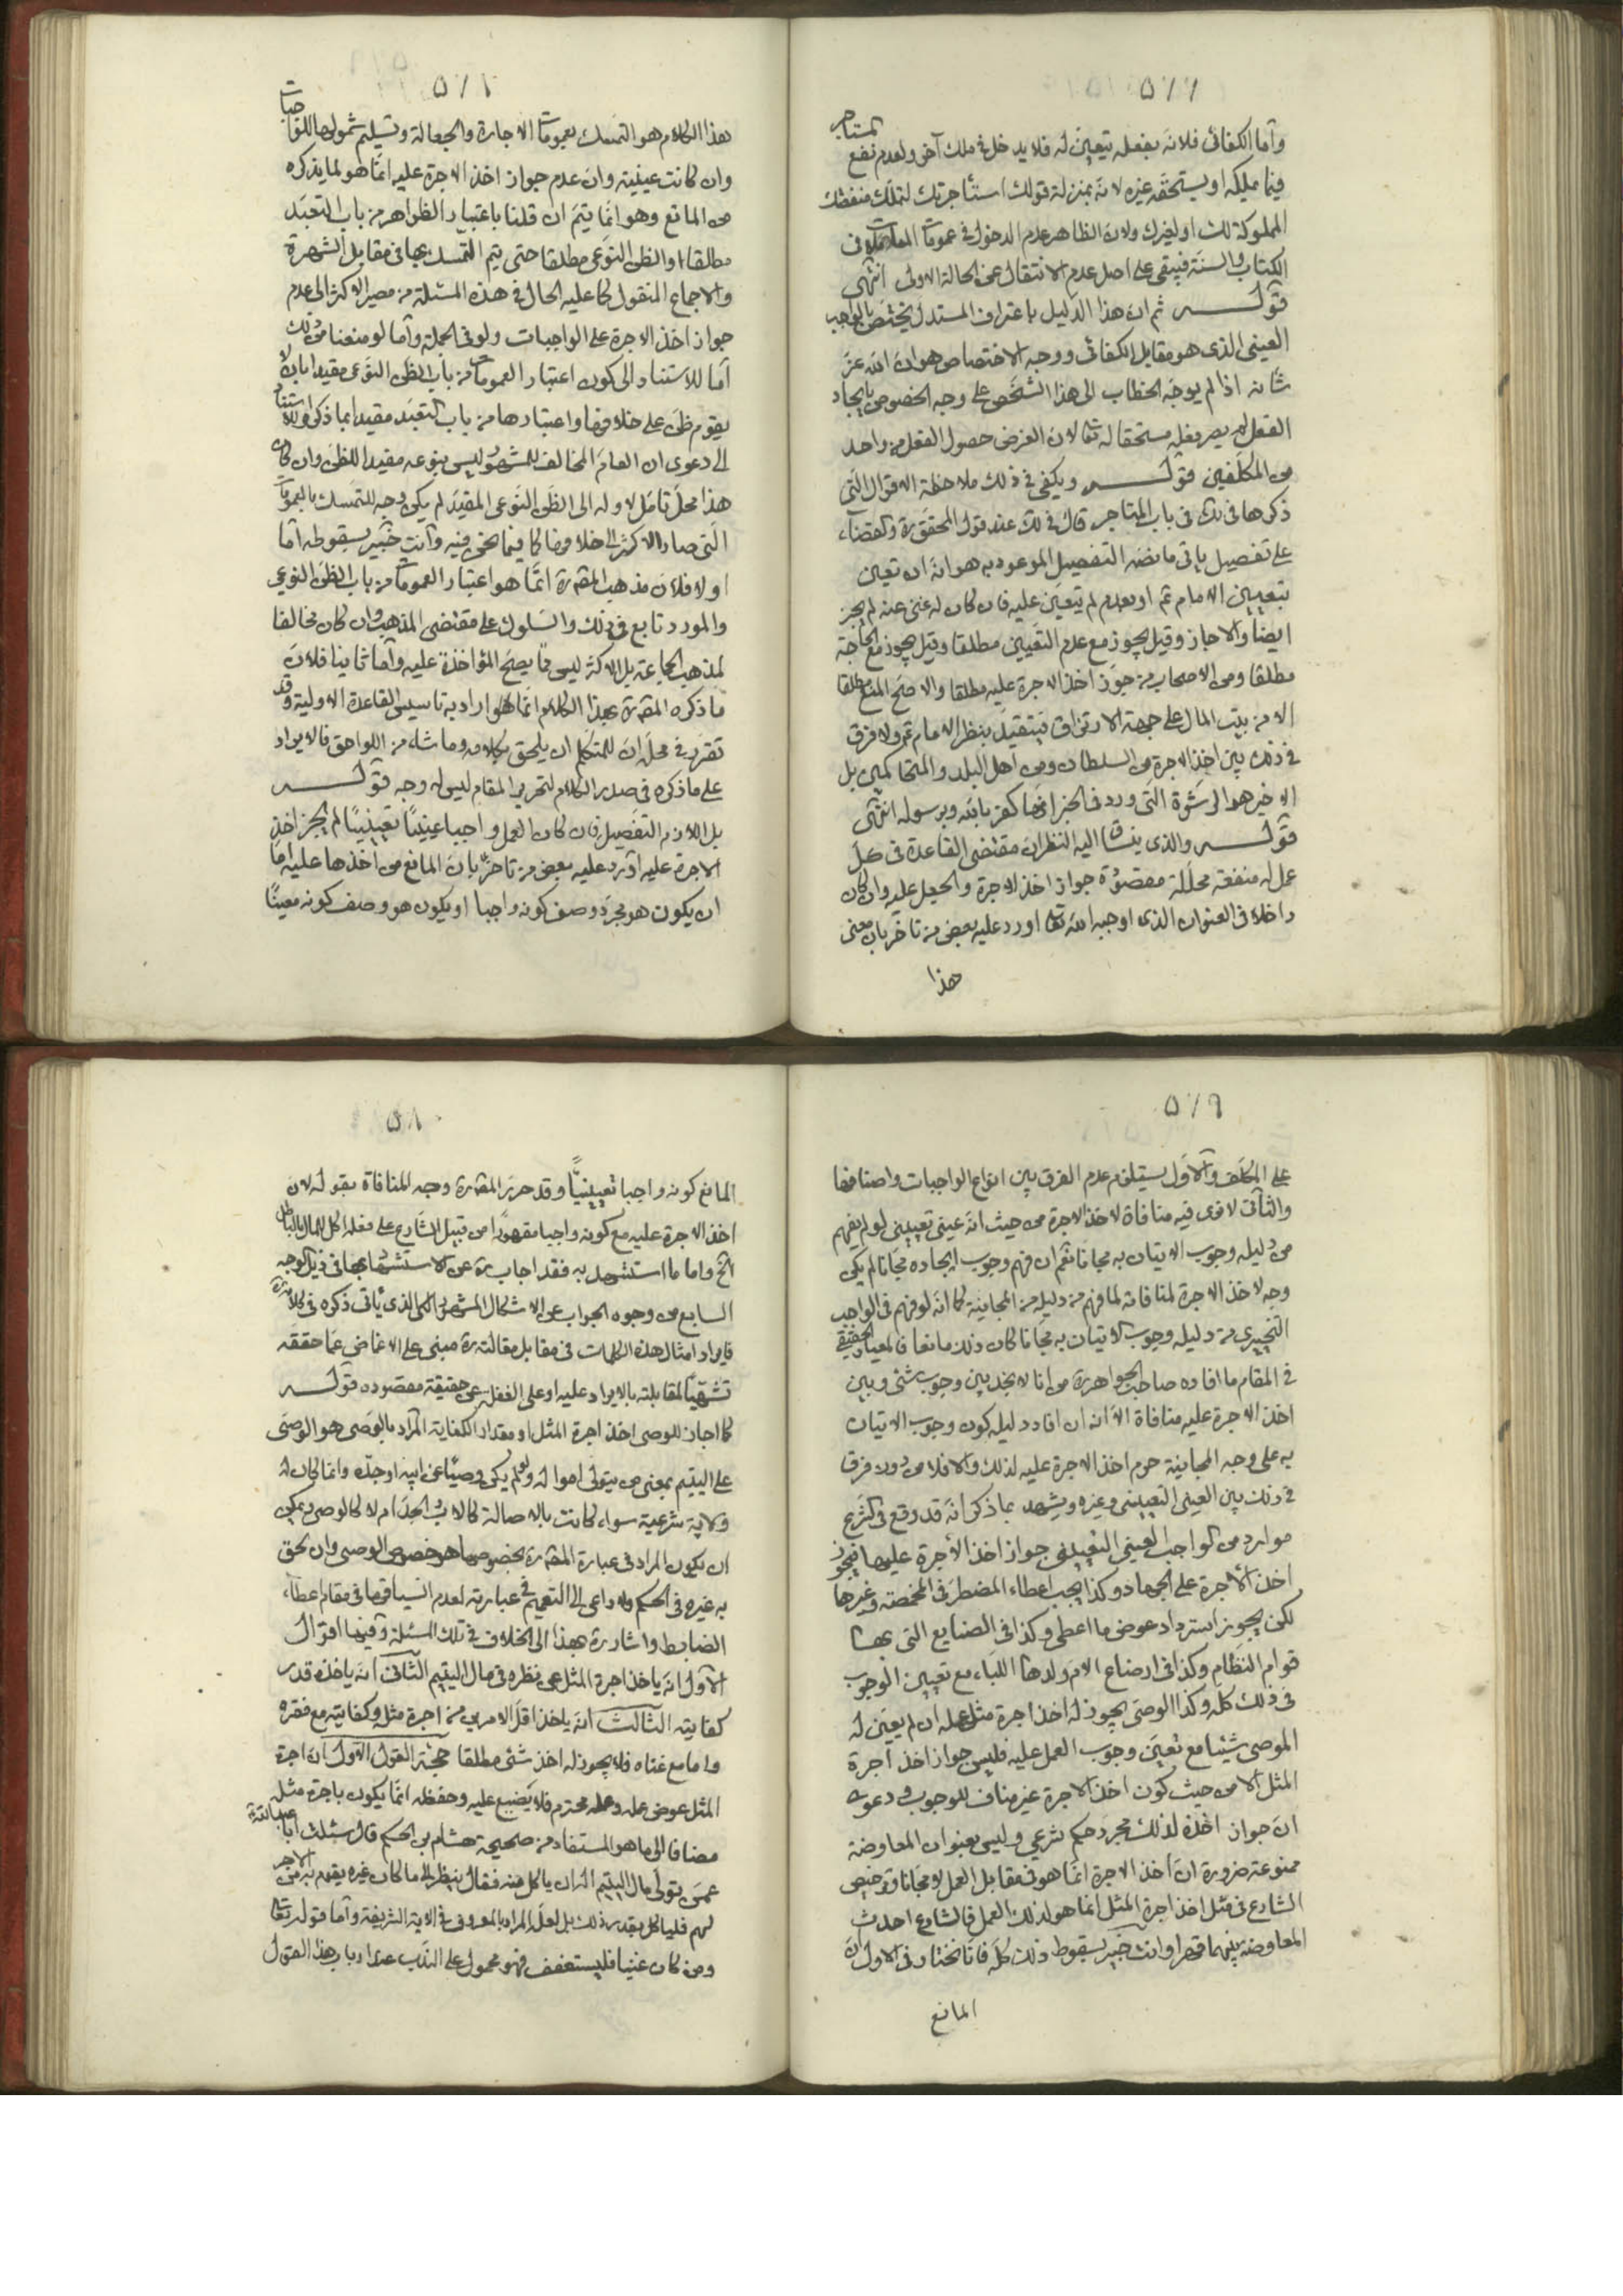 ٥٧٧
وأما الكفائى فلانه بفعله يتعين له فلا يدخل فى ملك آخر ولعدم نفع المستاجر
فيما يملكه او يستحقه غيره لانه بمنزلة قولك استأجرتك لتملك منفعتك
المملوكة لك او لغيرك ولان الظاهر عدم الدخول فى عمومات المعاملات فى
الكتاب والسنة فيبقى على اصل عدم الانتقال عن الحالة الاولى انتهى
قوله ثم ان هذا الدليل باعتراف المستدل يختص بالواجب
العينى الذى هو مقابل الكفائى ووجه الاختصاص هو ان الله عز
شانه اذا لم يوجه الخطاب الى هذا الشخص على وجه الخصوص بايجاد
الفعل لم يصر فعله مستحقا له تعالى لان الغرض حصول الفعل من واحد
من المكلفين قوله ويكفى فى ذلك ملاحظة الاقوال التى
ذكرها فى لك فى باب المتاجر قال فى لك عند قول المحقق ره والقضاء
على تفصيل ياتى ما نصه التفصيل الموعود به هو انه ان تعين
بتعيين الامام ع او بعدم لم يتعين عليه فان كان له غنى عنه لم يجز
ايضا والا جاز وقيل يجوز مع عدم التعيين مطلقا وقيل يجوز مع الحاجة
مطلقا ومن الاصحاب من جوز اخذ الاجرة عليه مطلقا والاصح المنع مطلقا
الا من بيت المال على جهة الارتزاق فيتقيد بنظر الامام ع ولا فرق
فى ذلك بين اخذ الاجرة من السلطان ومن اهل البلد والمتحاكمين بل
الاخير هو الرشوة التى ورد فى الخبر انها كفر بالله وبرسوله انتهى
قوله والذى ينساق اليه النظر ان مقتضى القاعدة فى كل
عمل له منفعة محللة مقصودة جواز اخذ الاجرة والجعل عليه وان كان
داخلا فى العنوان الذى اوجبه الله تعالى اورد عليه بعض من تاخر بان معنى
هذا
٥٧٨
هذا الكلام هو التمسك بعمومات الاجارة والجعالة وتسليم شمولها للواجبات
وان كانت عينية وان عدم جواز اخذ الاجرة عليه انما هو لما يذكره
من المانع وهو انما يتم ان قلنا باعتبار الظواهر من باب التعبد
مطلقا او الظن النوعى مطلقا حتى يتم التمسك بها فى مقابل الشهرة
والاجماع المنقول كما عليه الحال فى هذه المسئلة من مصير الاكثر الى عدم
جواز اخذ الاجرة على الواجبات ولو فى الجملة وأما لو منعنا من ذلك
اما للاستناد الى كون اعتبار العمومات من باب الظن النوعى مقيدا بان لا
يقوم ظن على خلافها واعتبارها من باب التعبد مقيدا بما ذكر وللاستناد
الى دعوى ان العام المخالف للمشهور ليس بنوعه مفيدا للظن وان كان
هذا محل تامل لا وله الى الظن النوعى المقيد لم يكن وجه للتمسك بالعمومات
التى صار الاكثر الى خلافها كما فيما نحن فيه وأنت خبير بسقوطه أما
اولا فلان مذهب المص ره انما هو اعتبار العمومات من باب الظن النوعى
والمورد تابع فى ذلك والسلوك على مقتضى المذهب وان كان مخالفا
لمذهب الجماعة بل الاكثر ليس مما يصح المؤاخذة عليه وأما ثانيا فلان
ما ذكره المص ره بهذا الكلام انما هو اراد به تاسيس القاعدة الاولية وقد
تقرر فى محل ان للمتكلم ان يلحق بكلامه وما شاء من اللواحق فالايراد
على ما ذكره فى صدر الكلام لتحرير المقام ليس له وجه قوله
بل اللازم التفصيل فان كان العمل واجبا عينيا تعيينيا لم يجز اخذ
الاجرة عليه اورد عليه بعض من تاخر بان المانع من اخذها عليه اما
ان يكون هو مجرد وصف كونه واجبا او يكون هو وصف كونه معينا
٥٧٩
على المكلف والاول يستلزم عدم الفرق بين انواع الواجبات واصنافها
والثانى لا نرى فيه منافاة لاخذ الاجرة من حيث انه عينى تعيينى لو لم يفهم
من دليله وجوب الاتيان به مجانا نعم ان فهم وجوب ايجاده مجانا لم يكن
وجه لاخذ الاجرة لمنافاته لما فهم من دليله من المجانية كما انه لو فهم فى الواجب
التخييرى من دليله وجوب الاتيان به مجانا كان ذلك مانعا فالمعيار الحقيقى
فى المقام ما افاده صاحب الجواهر ره من انا لا نجد بين وجوب شئ وبين
اخذ الاجرة عليه منافاة الا انه ان افاد دليله كون وجوب الاتيان
به على وجه المجانية حرم اخذ الاجرة عليه لذلك والا فلا من دون فرق
فى ذلك بين العينى التعيينى وغيره ويشهد بما ذكر انه قد وقع فى الشرع
موارد من الواجب العينى التعيينى جواز اخذ الأجرة عليها فيجوز
اخذ الأجرة على الجهاد وكذا يجب اعطاء المضطر فى المخمصة وغيرها
لكن يجوز استرداد عوض ما اعطى وكذا فى الصنايع التى بها
قوام النظام وكذا فى ارضاع الام ولدها اللباء مع تعيين الوجوب
فى ذلك كله وكذا الوصى يجوز له اخذ اجرة مثل عمله ان لم يعين له
الموصى شيئا مع تعين وجوب العمل عليه فليس جواز اخذ اجرة
المثل الا من حيث كون اخذ الاجرة غير مناف للوجوب ودعوى
ان جواز اخذه لذلك مجرد حكم شرعى وليس بعنوان المعاوضة
ممنوعة ضرورة ان اخذ الاجرة انما هو فى مقابل العمل لا مجانا وترخيص
الشارع فى مثل اخذ اجرة المثل انما هو لذلك العمل فالشارع احدث
المعاوضة بينهما قهرا وانت خبير بسقوط ذلك كله فانا نختار فى الاول ان
المانع
٥٨٠
المانع كونه واجبا تعيينيا وقد حرر المص ره وجه المنافاة بقوله لان
اخذ الاجرة عليه مع كونه واجبا مقهورا من قبل الشارع على فعله اكل للمال بالباطل
الخ واما ما استشهد به فقد اجاب ره عن الاستشهاد بها فى ذيل الوجه
السابع من وجوه الجواب عن الاشكال المشهور الذى ياتى ذكره فى كلامه ره
فايراد امثال هذه الكلمات فى مقابل مقالته ره مبنى على الاغماض عما حققه
تشهيا لمقابلته بالايراد عليه او على الغفلة عن حقيقة مقصوده قوله
كما اجاز للوصى اخذ اجرة المثل او مقدار الكفاية المراد بالوصى هو الوصى
على اليتيم بمعنى من يتولى امواله ولو لم يكن وصيا عن ابيه او جده وانما كان له
ولاية شرعية سواء كانت بالاصالة كالاب والجد ام لا كالوصى ويمكن
ان يكون المراد فى عبارة المص ره بخصوصها هو خصوص الوصى وان لحق
به غيره فى الحكم ولا داعى الى التعميم فى عبارته لعدم انسياقها فى مقام اعطاء
الضابط واشار ره بهذا الى الخلاف فى تلك المسئلة وفيها اقوال
الاول انه ياخذ اجرة المثل عن نظره فى مال اليتيم الثانى انه ياخذ قدر
كفايته الثالث انه ياخذ اقل الامرين من اجرة مثله وكفايته مع فقره
واما مع غناه فلا يجوز له اخذ شئ مطلقا حجة القول الاول ان اجرة
المثل عوض عمله وعمله محترم فلا يضيع عليه وحفظه انما يكون باجرة مثله
مضافا الى ما هو المستفاد من صحيحة هشام بن الحكم قال سئلت ابا عبد الله ع
عمن تولى مال اليتيم اله ان ياكل منه فقال ينظر الى ما كان غيره يقوم به من الاجر
لهم فلياكل بقدر ذلك بل لعل المراد بالمعروف فى الاية الشريفة وأما قوله تعالى
ومن كان غنيا فليستعفف فهو محمول على الندب عند ارباب هذا القول